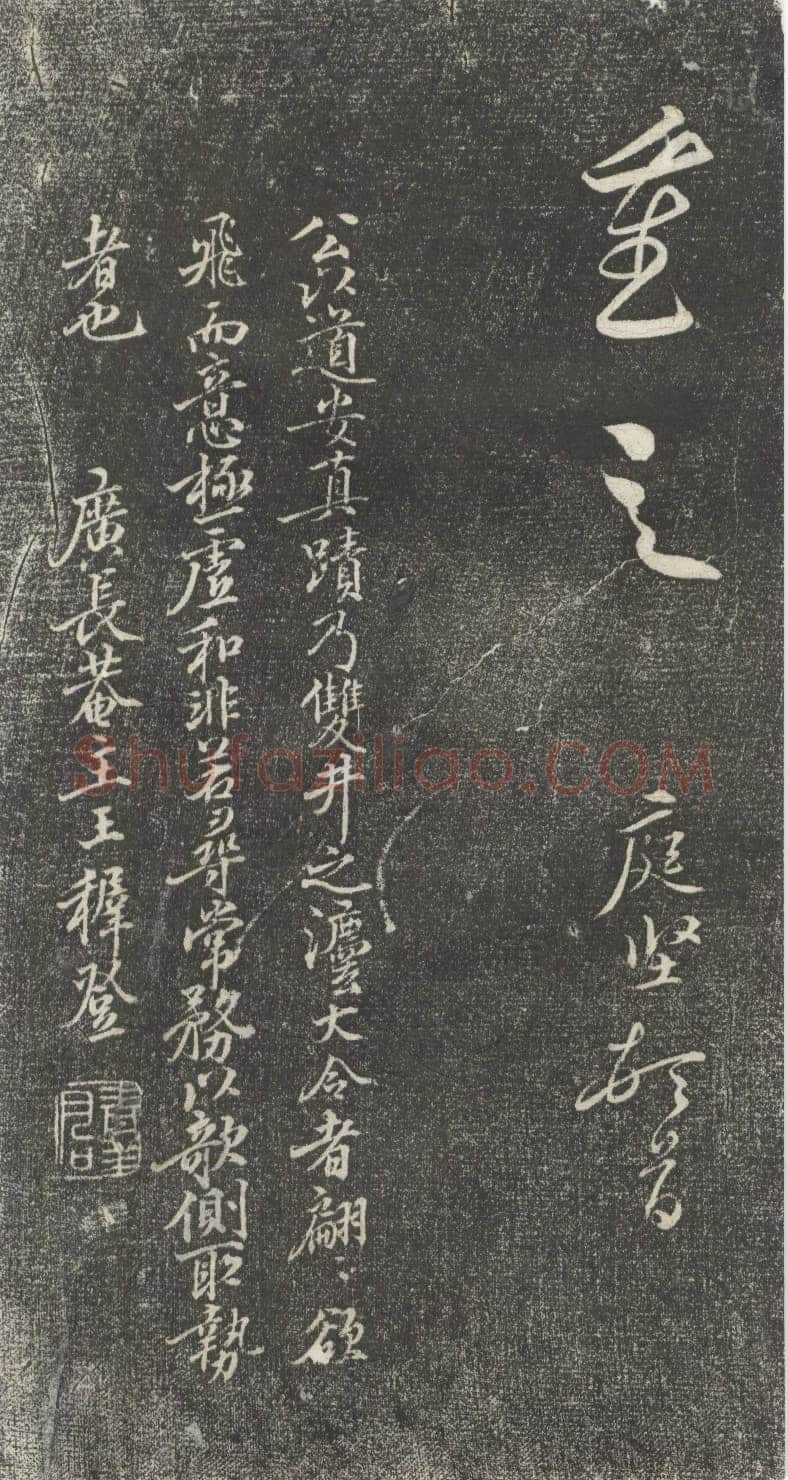 重之 庭坚頓首
公以道安真蹟乃雙井之灋大令者翩〻欲
飛而意極虛和非若尋常務以欹側取勢
者也 廣長菴主王穉登
Shufaziliao.COM